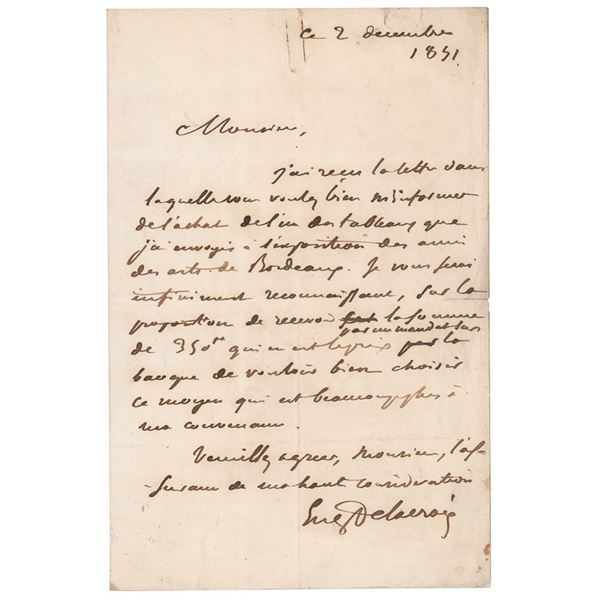 ce 2 decembre
1851.
Monsieur,
j'ai reçu la lettre dans
laquelle vous voulez bien m'informer
de l'achat de l'un des tableaux que
j'ai envoyés à l'exposition des amis
des arts de Bordeaux. Je vous serai
infiniment reconnaissant, sur la
proposition de recevoir la somme
par un mandat sur
de 350 fr qui en est le prix par la
banque de vouloir bien choisir
ce moyen qui est beaucoup plus à
ma convenance.
Veuillez agréer, Monsieur, l'as-
surance de ma haute considération
Eug Delacroix